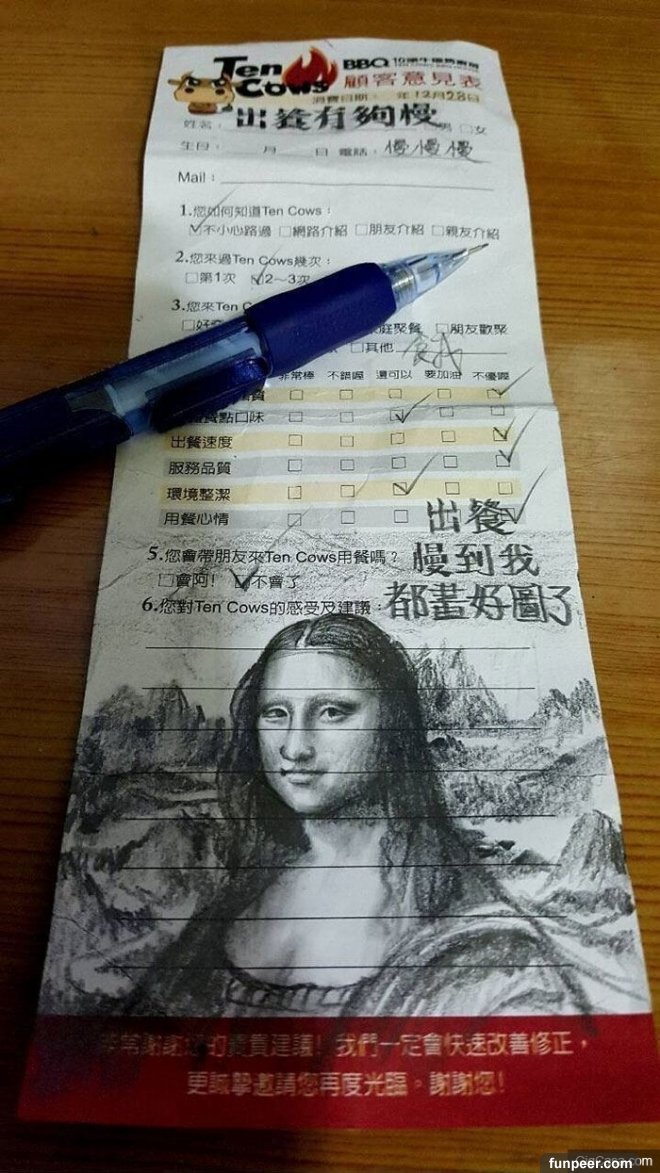 Ten Cows
BBQ
顧客意見表
消費日期: 年12月28日
姓名: 出餐有夠慢 男 □女
生日: 月 日 電話: 慢慢慢
Mail:
1.您如何知道Ten Cows:
☑不小心路過 □網路介紹 □朋友介紹 □親友介紹
2.您來過Ten Cows幾次:
□第1次 ☑2~3次
3.您來Ten C
庭聚餐 □朋友歡聚
□其他 餓
非常棒 不錯喔 還可以 要加油 不優喔
質
餐點口味
出餐速度
服務品質
環境整潔
用餐心情
出餐
慢到我
都畫好圖了
5.您會帶朋友來Ten Cows用餐嗎?
□會阿! ☑不會了
6.您對Ten Cows的感受及建議:
非常謝謝您的寶貴建議! 我們一定會快速改善修正,
更誠摯邀請您再度光臨。謝謝您!
funpeer.com